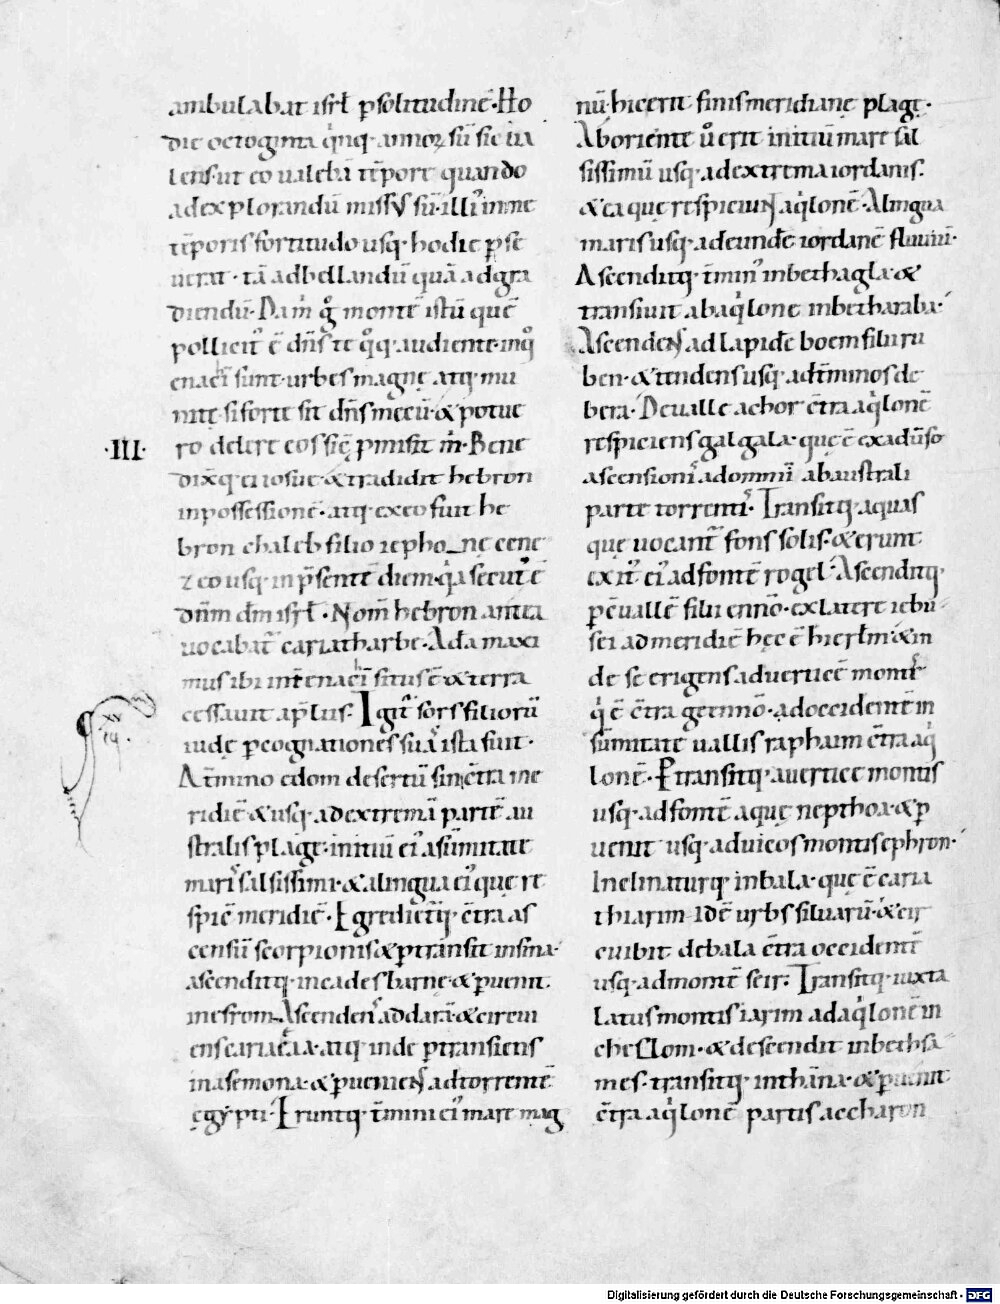 ambulabat isrł ꝑ solitudinē· Ho
die octoginta q̇nq· annoꝝ sū sic ua
lens· ut eo ualebā tēpore quando
ad explorandū missus sū· illi᾽ in me
tēporis fortitudo usq· hodie ꝑse
uerat· tā ad bellandū quā ad gra
diendū· Da m̄ g̊ montē istū quē
pollicit᾽ ē dn̄s te q̊q· audiente· in q̊
enaci᷒ sunt· urbes magnę atq· mu
nitę· si forte sit dn̄s mecū· & potue
·III· ro delere eos sic̄ ꝓmisit m̄· Bene
dixq· ei iosue· & tradidit hebron
in possessionē· atq· ex eo fuit he
bron chaleb filio iephone cene
zeo usq· in p̄sentē diem· q̇a secut᾽ ē
dn̄m dm̄ isrł· Nom̄ hebron antea
uocabat᷒ cariatharbe· Ada maxi
mus ibi int̄ enaci᷒ situs ē· & terra
cessauit a p̄lus· Igit᷒ sors filiorū
iudę ꝑ cognationes suas ista fuit·
A t̄mino edom desertū sin c̄tra me
ridiē & usq· ad extremā partē au
stralis plagę· initiū ei᾽ a sūmitate
maris salsissimi· & a lingua ei᾽ quę re
spic̄ meridiē· Egredietq· c̄tra as
censū scorpionis & ꝑtransit in sina·
ascenditq· in cades barne & ꝑuenit
in esrom· Ascendens ad darā· & circui
ens cariacaa· atq· inde ꝑtransiens
in asemona· & ꝑueniens ad torrentē
ęgypti· Eruntq· t̄mini ei᾽ mare mag
nū· hic erit finis meridianę plagę·
Ab oriente u̇ erit initiū mare sal
sissimū usq· ad extrema iordanis·
& ea quę respiciunt aq̇lonē· A lingua
maris usq· ad eundē iordanē fluuiū·
Ascenditq· t̄min᾽ in bethagla· &
transiuit ab aq̇lone in betharaba·
Ascendens ad lapidē boem filii ru
ben· & tendens usq· ad t̄minos de
bera· De ualle achor c̄tra aq̇lonē
respiciens galgala· quę ē ex aduso
ascensionis adommi᷒ ab australi
parte torrentis· Transitq· aquas
quę uocant᷒ fons solis· & erunt
exit᾽ ei᾽ ad fontē rogel· Ascenditq·
ꝑ cuallē filii ennō· ex latere iebu
sei ad meridiē hęc ē hierłm· & in
de se erigens ad uerticē montis
q̇ ē c̄tra geennō· ad occidentē in
sūmitate uallis raphaim c̄tra aq̇
lonē· Ptransitq· a uertice montis
usq· ad fontē aquę nepthoa· & ꝑ
uenit usq· ad uicos montis ephron·
Inclinaturq· in bala· quę ē caria
thiarim· idē urbs siluarū· & cir
cuibit de bala c̄tra occidentē
usq· ad montē seir· Transitq· iuxta
latus montis iarim ad aq̇lonē in
cheslom· & descendit in bethsa
mes· transitq· in thāna· & ꝑuenit
c̄tra aq̇lonē partis accharon
Digitalisierung gefördert durch die Deutsche Forschungsgemeinschaft · DFG